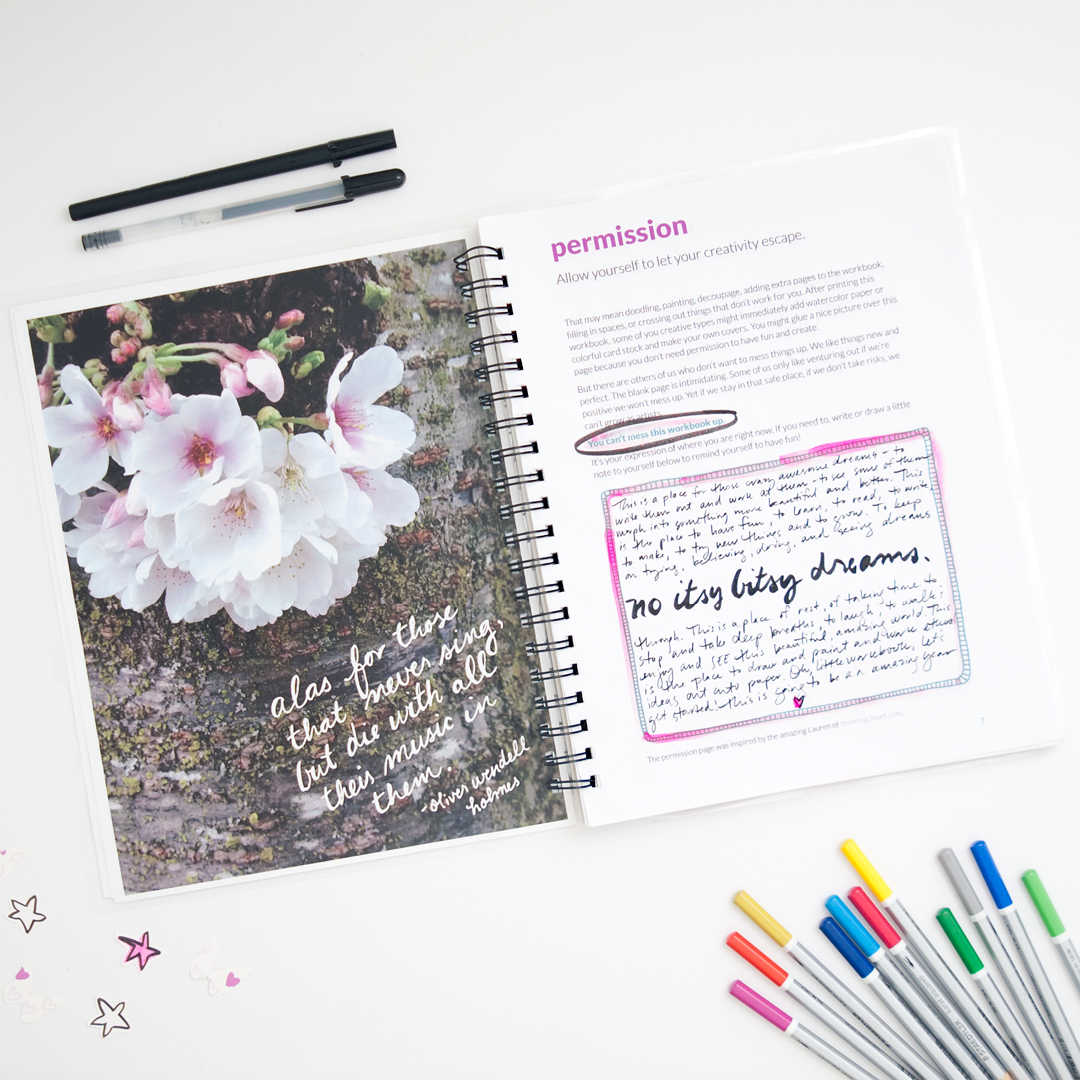 alas for those
that never sing,
but die with all
their music in
them.
-oliver wendell
holmes
permission
Allow yourself to let your creativity escape.
That may mean doodling, painting, decoupage, adding extra pages to the workbook,
filling in spaces, or crossing out things that don't work for you. After printing this
workbook, some of you creative types might immediately add watercolor paper or
colorful card stock and make your own covers. You might glue a nice picture over this
page because you don't need permission to have fun and create.
But there are others of us who don't want to mess things up. We like things new and
perfect. The blank page is intimidating. Some of us only like venturing out if we're
positive we won't mess up. Yet if we stay in that safe place, if we don't take risks, we
can't grow as artists.
You can't mess this workbook up.
It's your expression of where you are right now. If you need to, write or draw a little
note to yourself below to remind yourself to have fun!
This is a place for those crazy awesome dreams - to
write them out and work at them - to see some of them
morph into something more beautiful and better. This
is the place to have fun, to learn, to read, to write
to make, to try new things and to grow. To keep
on trying, believing, doing, and seeing dreams
no itsy bitsy dreams.
through. This is a place of rest, of taking time to
stop and take deep breaths, to laugh, to walk &
enjoy and SEE this beautiful, amazing world. This
is the place to draw and paint and work
ideas out onto paper. Oh, little workbook, let's
get started! This is going to be an amazing year
The permission page was inspired by the amazing Lauren of thinkingcloset.com.
7
STAEDTLER